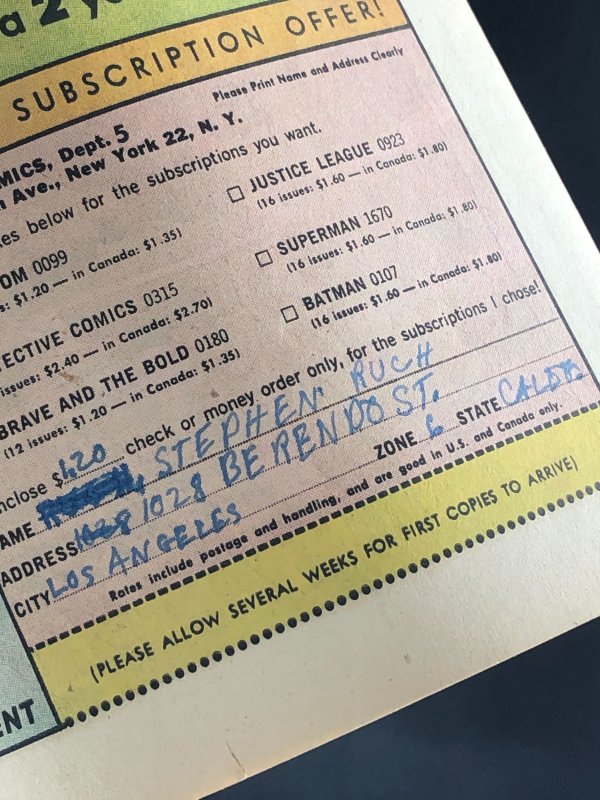 a 2 y
SUBSCRIPTION OFFER!
Please Print Name and Address Clearly
MICS, Dept. 5
Ave., New York 22, N. Y.
es below for the subscriptions you want.
OM 0099
s: $1.20 — in Canada: $1.35)
TECTIVE COMICS 0315
issues: $2.40 — in Canada: $2.70)
BRAVE AND THE BOLD 0180
(12 issues: $1.20 — in Canada: $1.35)
JUSTICE LEAGUE 0923
(16 issues: $1.60 — in Canada: $1.80)
SUPERMAN 1670
(16 issues: $1.60 — in Canada: $1.80)
BATMAN 0107
(16 issues: $1.60 — in Canada: $1.80)
nclose $1.20 check or money order only, for the subscriptions I chose!
AME STEPHEN RUCH
ADDRESS 1028 BERENDO ST.
CITY LOS ANGELES ZONE 6 STATE
Rates include postage and handling, and are good in U.S. and Canada only.
(PLEASE ALLOW SEVERAL WEEKS FOR FIRST COPIES TO ARRIVE)
ENT